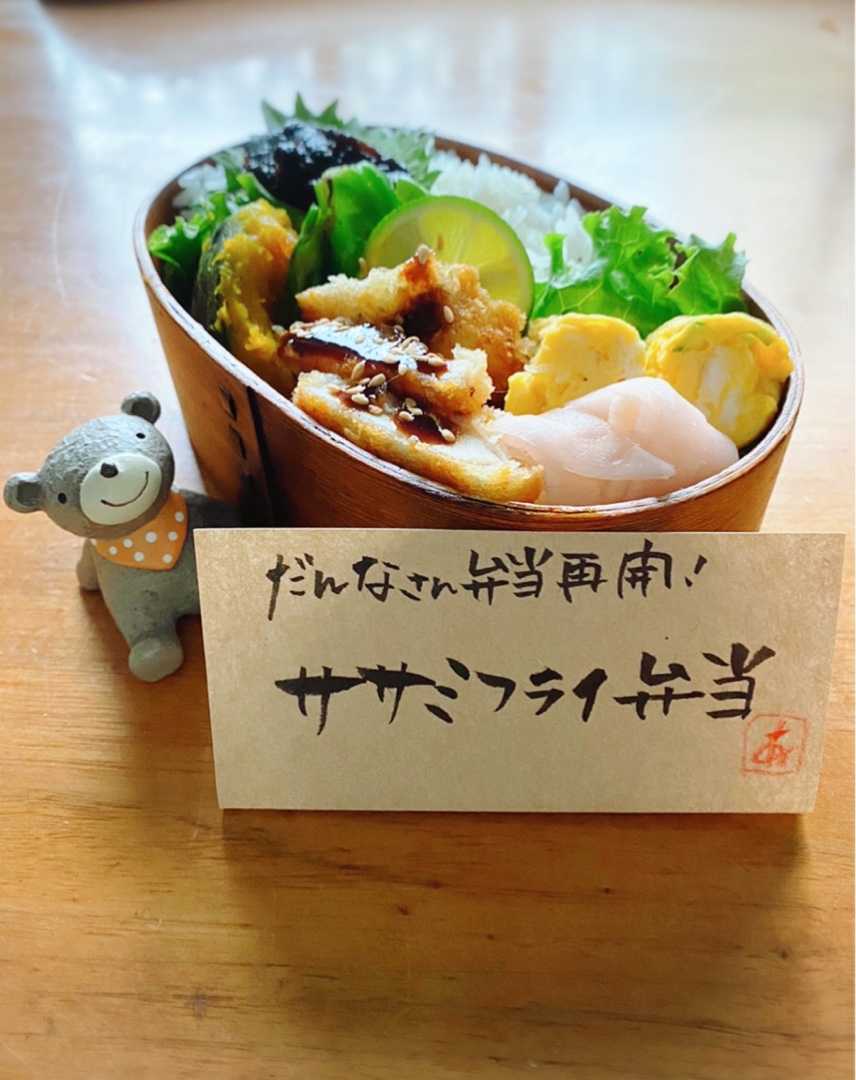 だんなさん弁当再開!
ササミフライ弁当
あ